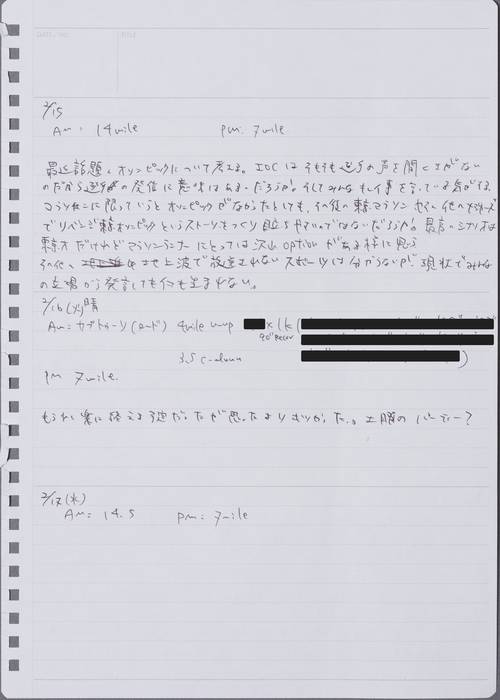 2/15
Am: 14mile pm: 7mile
最近話題のオリンピックについて考える。IOCはそもそも選手の声を聞く気がない
のだから選手の発信に意味はあるのだろうか。そしてみんな同じ事を言っている気がする。
マラソンに限っていうとオリンピックがなかったとしても、その後の東京マラソン
でリベンジ東京オリンピックというストーリーもつくり出しやすいのではないだろうか。最高のシナリオは
東京だけれどマラソンランナーにとっては沢山optionがある様に思う
その他、地上波で放送されないスポーツは分からないが、現状でみんな
の立場から発言しても何も生まれない。
2/16(火)晴
Am: (ロード) 4mile w-up ×1k (
90"recov
3.5 c-down )
pm 7mile.
もう少し楽に終える予定だったが思ったよりきつかった。土曜の
2/17(水)
Am: 14.5 pm: 7mile